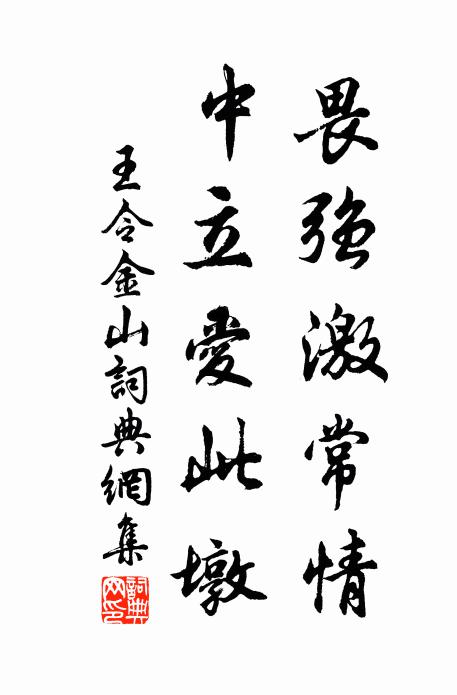 畏強激常情
中立愛此墩
王令金山詞典網集
詞典網印